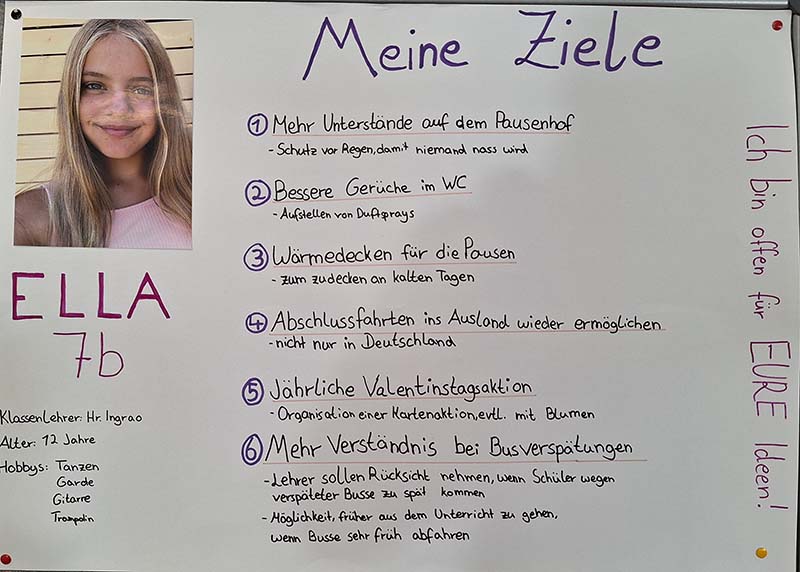 Meine Ziele
① Mehr Unterstände auf dem Pausenhof
- Schutz vor Regen, damit niemand nass wird
② Bessere Gerüche im WC
- Aufstellen von Duftsprays
③ Wärmedecken für die Pausen
- zum zudecken an kalten Tagen
④ Abschlussfahrten ins Ausland wieder ermöglichen
- nicht nur in Deutschland
⑤ Jährliche Valentinstagsaktion
- Organisation einer Kartenaktion, evtl. mit Blumen
⑥ Mehr Verständnis bei Busverspätungen
- Lehrer sollen Rücksicht nehmen, wenn Schüler wegen
verspäteter Busse zu spät kommen
- Möglichkeit, früher aus dem Unterricht zu gehen,
wenn Busse sehr früh abfahren
ELLA
7b
Klassenlehrer: Hr. Ingrao
Alter: 12 Jahre
Hobbys: Tanzen
Garde
Gitarre
Trampolin
Ich bin offen für EURE Ideen!